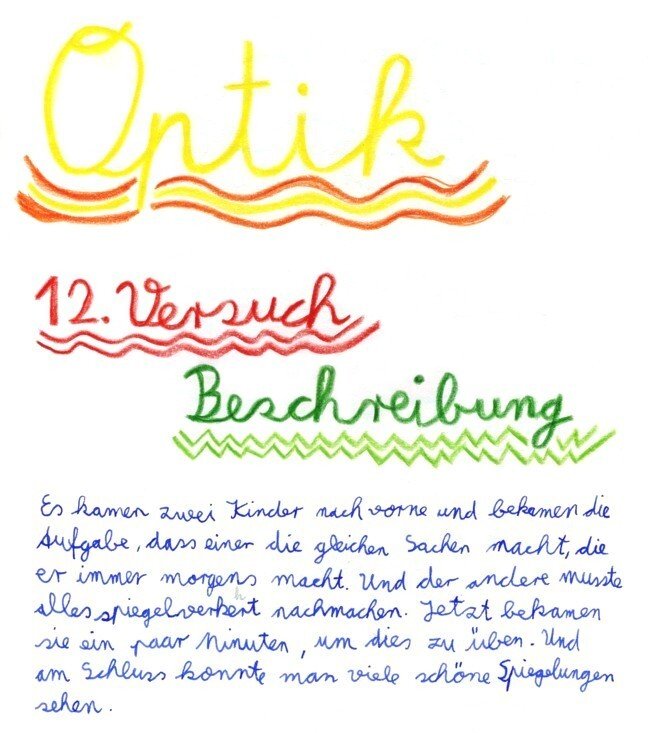 Optik
12. Versuch
Beschreibung
Es kamen zwei Kinder nach vorne und bekamen die
Aufgabe, dass einer die gleichen Sachen macht, die
er immer morgens macht. Und der andere musste
alles spiegelverkehrt nachmachen. Jetzt bekamen
sie ein paar Minuten, um dies zu üben. Und
am Schluss konnte man viele schöne Spiegelungen
sehen.